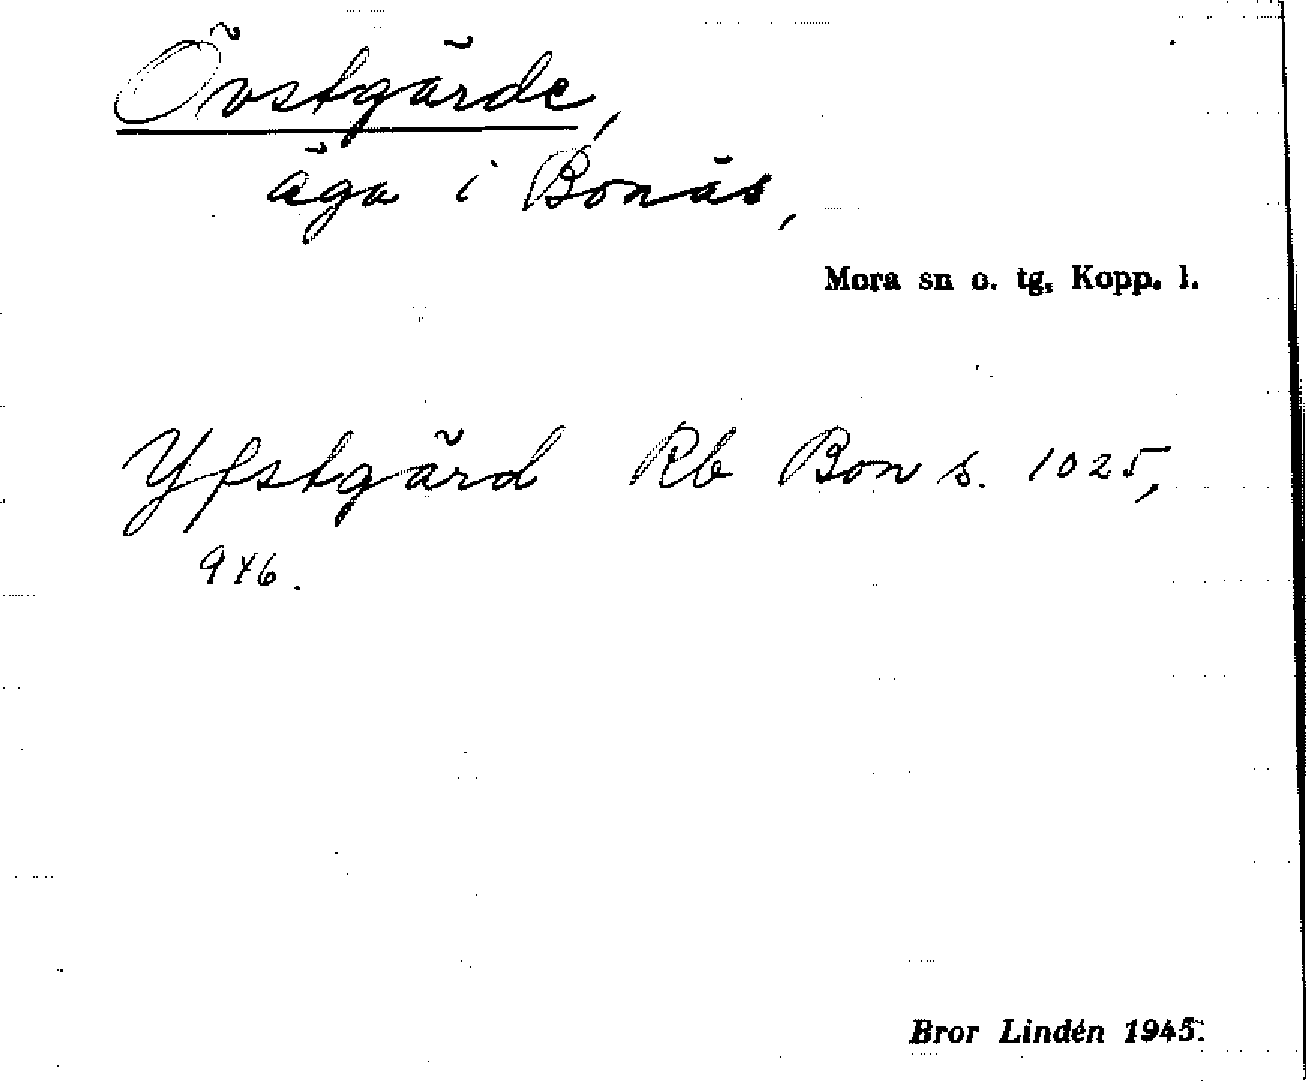 Övstgärde,
äga i Bonäs,
Mora sn o. tg, Kopp. l.
Yfstgärd Rb Bon s. 1025,
946.
Bror Lindén 1945.